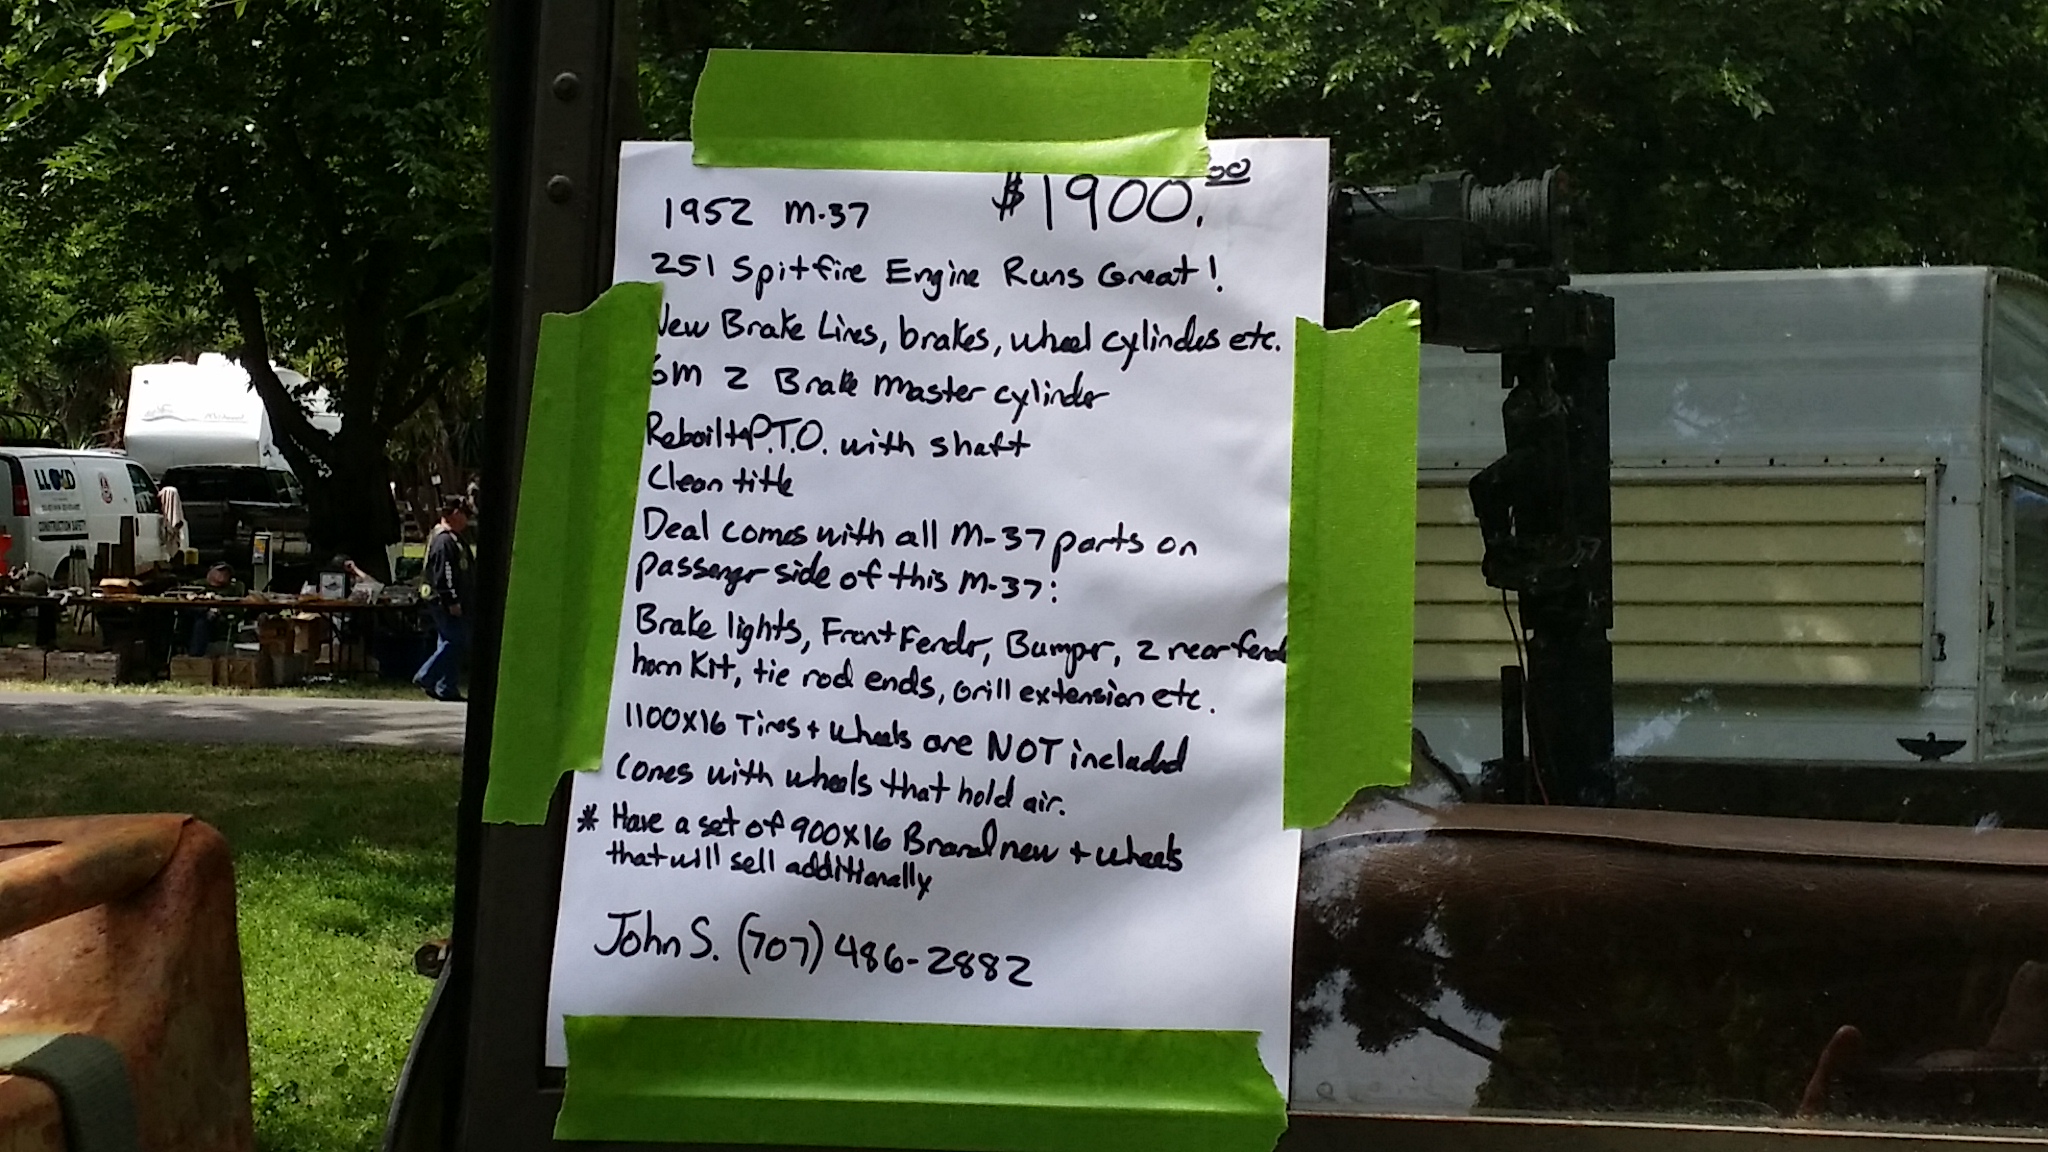 $1900.00
1952 M-37
251 Spitfire Engine Runs Great!
New Brake Lines, brakes, wheel cylinders etc.
GM 2 Brake Master cylinder
Reboilt P.T.O. with shaft
Clean title
Deal comes with all M-37 parts on
passenger side of this M-37:
Brake lights, Front Fender, Bumper, 2 rear fende
horn Kit, tie rod ends, Grill extension etc.
1100x16 Tires + wheels are NOT included
Comes with wheels that hold air.
* Have a set of 900x16 Brand new + wheels
that will sell additionally
John S. (707) 486-2882
LLOYD
CONSTRUCTION SAFETY